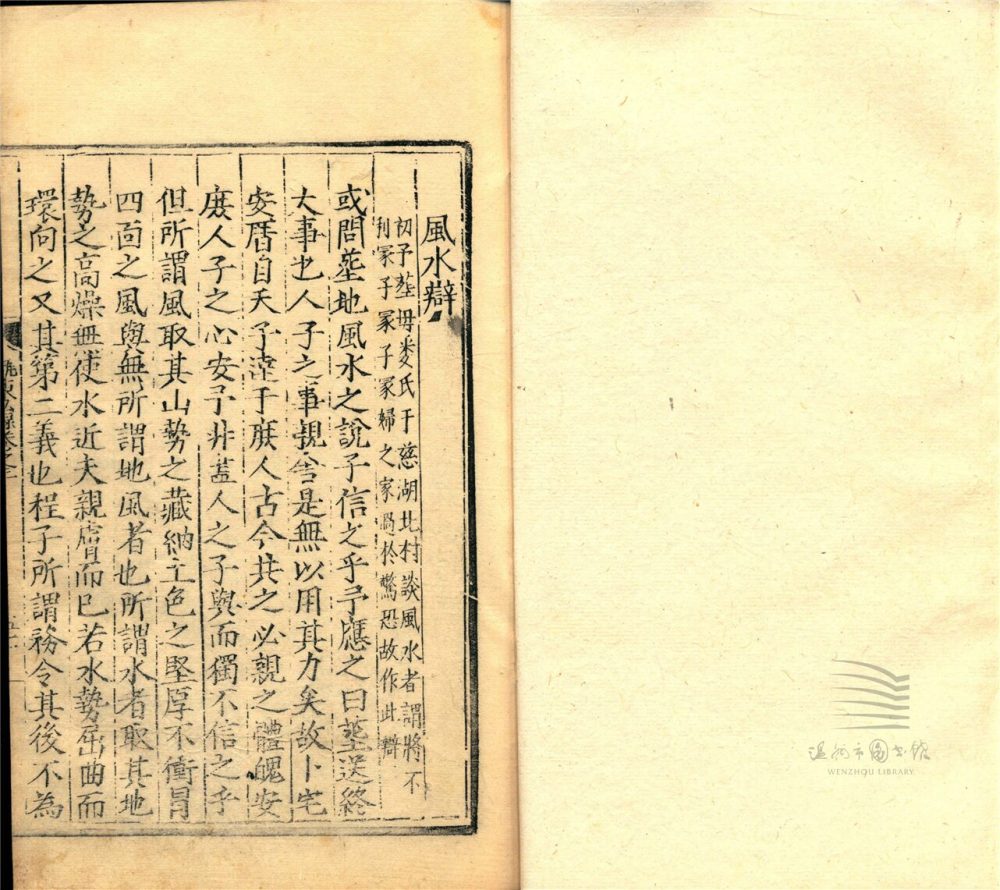 風水辯
初予塟母娄氏于慈湖北村談風水者謂將不
利冡子冡子冡婦之家過於驚恐故作此辯
或問塟地風水之說子信之乎予應之曰塟送終
大事也人子之事親舍是無以用其力矣故卜宅
安厝自天子達于庻人古今共之必親之體魄安
庻人子之心安予非葢人之子與而獨不信之乎
但所謂風取其山勢之藏納土色之堅厚不衝冐
四面之風與無所謂地風者也所謂水者取其地
勢之高燥無使水近夫親膚而已若水勢屈曲而
環向之又其第二義也程子所謂務令其後不為
溫州市圖書館
WENZHOU LIBRARY